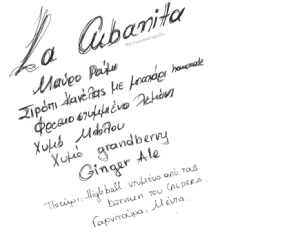 La Cubanita
Μαύρο Ρούμι
Σιρόπι Κανέλας με μπαχάρι homemade
Φρεσκοστυμμένο Λεμόνι
Χυμό Μήλου
Χυμό grandberry
Ginger Ale
Ποτήρι: Highball ντυμένο από τους
barmen του CALDERA.
Γαρνιτούρα: Μέντα.